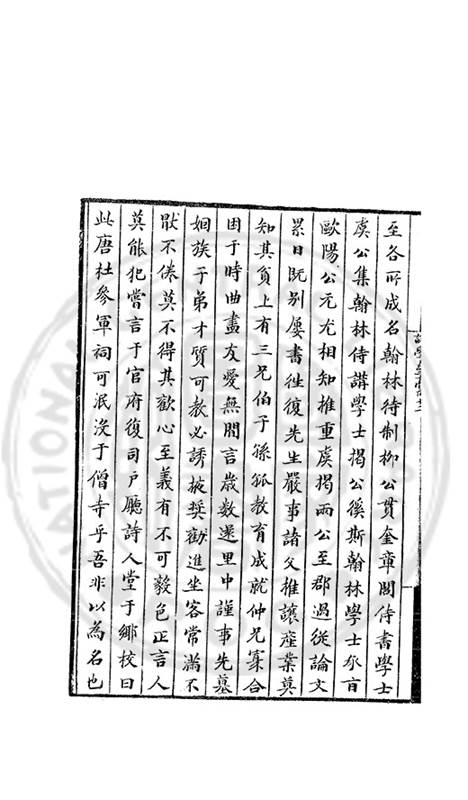 至各所成名翰林待制柳公貫奎章閣侍書學士
虞公集翰林侍講學士揭公徯斯翰林學士承旨
歐陽公元尤相知推重虞揭兩公至郡過從論文
累日既別屢書往復先生嚴事諸父推讓產業莫
知其負上有三兄伯子孫孤教育成就仲兄寡合
困于時曲盡友愛無間言歲數還里中謹事先墓
姻族子弟才質可教必誘掖奬勸進坐客常滿不
猒不倦莫不得其歡心至義有不可毅色正言人
莫能犯嘗言于官府復司戶廳詩人堂于鄉校曰
此唐杜參軍祠可泯没于僧寺乎吾非以為名也